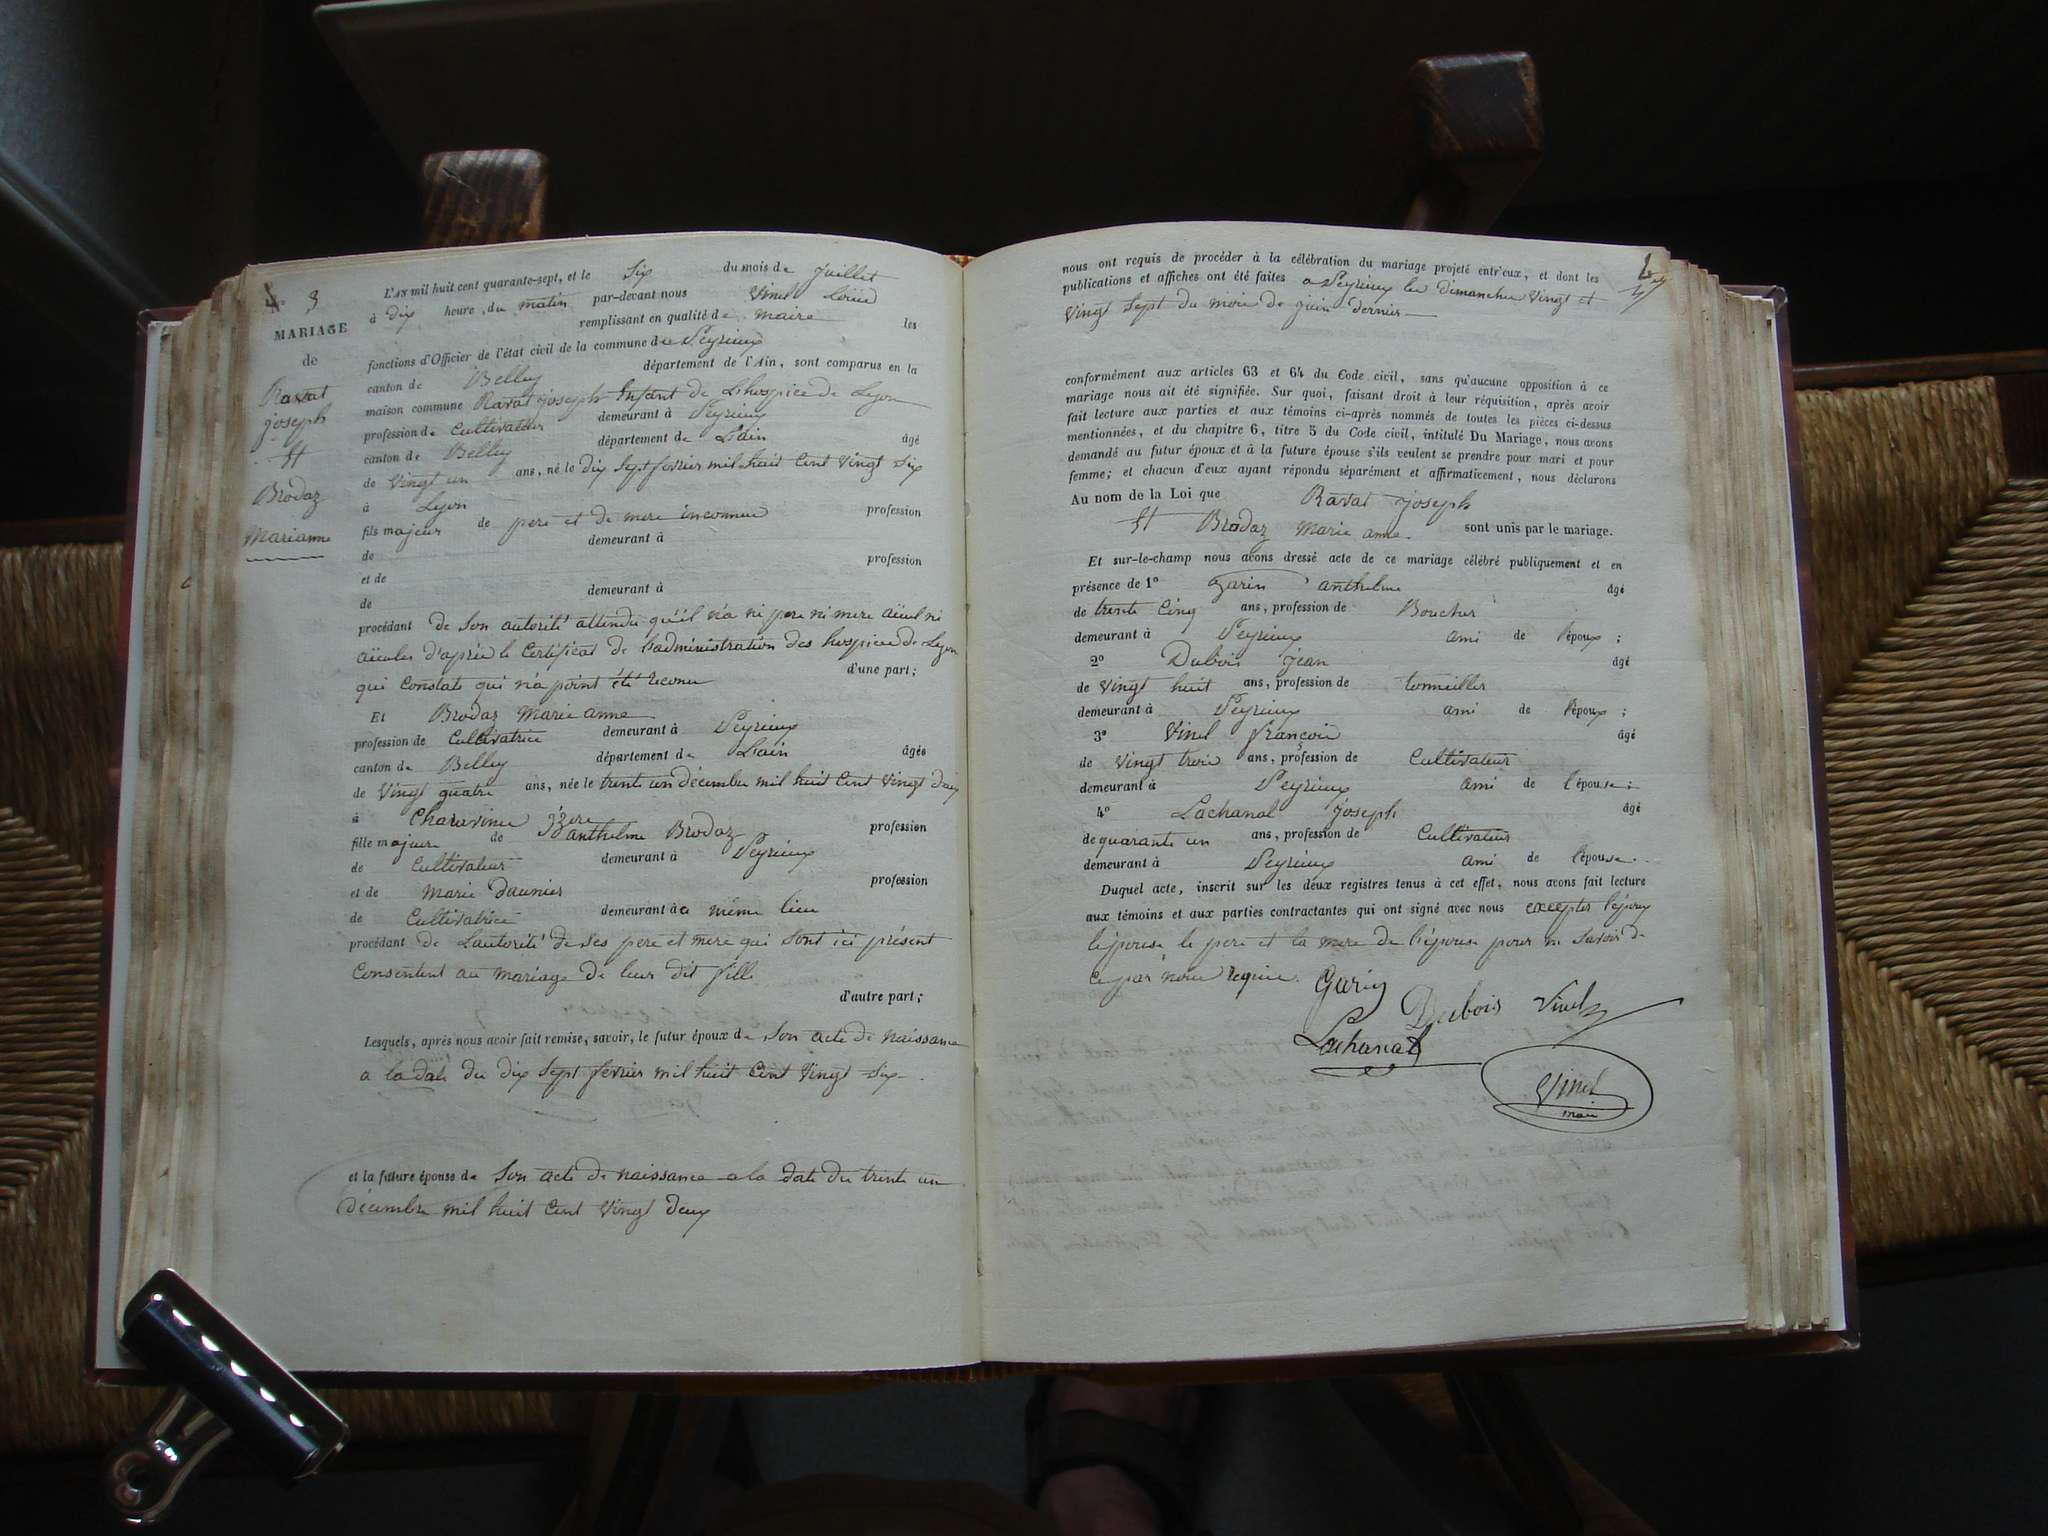 3
MARIAGE
de
Ravat
joseph
Et
Brodaz
Marianne
L'AN mil huit cent quarante-sept, et le Six du mois de juillet
à dix heure du matin par-devant nous Vinel Louis
remplissant en qualité de maire les
fonctions d'Officier de l'état civil de la commune de Peyrieux
canton de Belley département de l'Ain, sont comparus en la
maison commune Ravat joseph Enfant de Lhospice de Lyon
profession de Cultivateur demeurant à Peyrieux
canton de Belley département de Lain âgé
de Vingt un ans, né le dix Sept fevrier mil huit Cent Vingt Six
à Lyon
fils majeur de pere et de mere inconnue profession
de demeurant à
et de profession
de demeurant à
procédant de Son autorité attendu qu'il n'a ni pere ni mere aïeul ni
aïeules d'après le Certificat de Ladministration des hospice de Lyon
qui Constate qui n'a point été reconu d'une part;
Et Brodaz Marie anne
profession de Cultivatrice demeurant à Peyrieux
canton de Belley département de Lain âgée
de Vingt quatre ans, née le trente un décembre mil huit Cent Vingt deux
à Charavine jzere
fille majeure de anthelme Brodaz profession
de Cultivateur demeurant à Peyrieux
et de Marie Daunier profession
de Cultivatrice demeurant à a même lieu
procédant de Lautorité de Ses pere et mere qui Sont ici présent
Consentent au mariage de leur dit fille
d'autre part;
Lesquels, après nous avoir fait remise, savoir, le futur époux de Son acte de naissance
a la date du dix Sept fevrier mil huit Cent Vingt Six
et la future épouse de Son acte de naissance a la date du trente un
décembre mil huit Cent Vingt deux
nous ont requis de procéder à la célébration du mariage projeté entr'eux, et dont les
publications et affiches ont été faites a Peyrieux les dimanches Vingt et
Vingt Sept du mois de juin dernier
conformément aux articles 63 et 64 du Code civil, sans qu'aucune opposition à ce
mariage nous ait été signifiée. Sur quoi, faisant droit à leur réquisition, après avoir
fait lecture aux parties et aux témoins ci-après nommés de toutes les pièces ci-dessus
mentionnées, et du chapitre 6, titre 5 du Code civil, intitulé Du Mariage, nous avons
demandé au futur époux et à la future épouse s'ils veulent se prendre pour mari et pour
femme; et chacun d'eux ayant répondu séparément et affirmativement, nous déclarons
Au nom de la Loi que Ravat joseph
Et Brodaz Marie anne. sont unis par le mariage.
Et sur-le-champ nous avons dressé acte de ce mariage célébré publiquement et en
présence de 1º Garin anthelme âgé
de trente Cinq ans, profession de Boucher
demeurant à Peyrieux ami de l'époux;
2º Dubois jean âgé
de Vingt huit ans, profession de
demeurant à Peyrieux ami de l'époux;
3º Vinel françois âgé
de Vingt trois ans, profession de Cultivateur
demeurant à Peyrieux ami de l'épouse;
4º Lachanal joseph âgé
de quarante un ans, profession de Cultivateur
demeurant à Peyrieux ami de l'épouse.
Duquel acte, inscrit sur les deux registres tenus à cet effet, nous avons fait lecture
aux témoins et aux parties contractantes qui ont signé avec nous excepter l'époux
l'épouse le pere et la mere de l'épouse pour ne Savoir de
ce par nous requis. Garin
Dubois Vinel
Lachanal
Vinel
maire